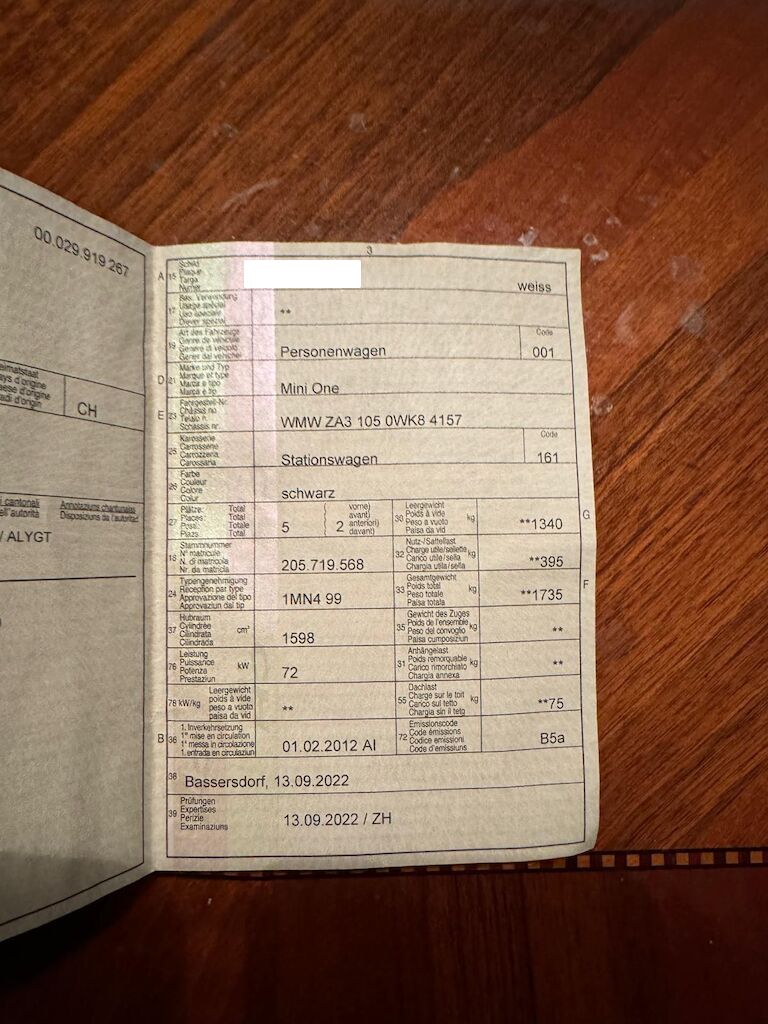 00.029.919.267
CH
/ ALYGT
3
A 15 Schild Plaque Targa Numer
weiss
17 Bes. Verwendung Usage spécial Uso speciale Diever spezial
**
19 Art des Fahrzeugs Genre de véhicule Genere di veicolo Gener dal vehichel
Personenwagen
Code
001
D 21 Marke und Typ Marque et type Marca e tipo Marca e tip
Mini One
E 23 Fahrgestell-Nr. Châssis no Telaio n. Schassis nr.
WMW ZA3 105 0WK8 4157
25 Karosserie Carrosserie Carrozzeria Carossaria
Stationswagen
Code
161
26 Farbe Couleur Colore Colur
schwarz
27 Plätze: Total Places: Total Posti: Totale Plazs: Total
5
2
vorne) avant) anteriori) davant)
30 Leergewicht Poids à vide Peso a vuoto Paisa da vid
kg
**1340
G
18 Stammnummer N° matricule N. di matricola Nr. da matricla
205.719.568
32 Nutz-/Sattellast Charge utile/sellette Carico utile/sella Chargia utila/sella
kg
**395
24 Typengenehmigung Réception par type Approvazione del tipo Approvaziun dal tip
1MN4 99
33 Gesamtgewicht Poids total Peso totale Paisa totala
kg
**1735
F
37 Hubraum Cylindrée Cilindrata Cilindrada
cm³
1598
35 Gewicht des Zuges Poids de l'ensemble Peso del convoglio Paisa cumposiziun
kg
**
76 Leistung Puissance Potenza Prestaziun
kW
72
31 Anhängelast Poids remorquable Carico rimorchiato Chargia annexa
kg
**
78 kW/kg Leergewicht poids à vide peso a vuoto paisa da vid
**
55 Dachlast Charge sur le toit Carico sul tetto Chargia sin il tetg
kg
**75
B 36 1. Inverkehrsetzung 1re mise en circulation 1a messa in circolazione 1. entrada en circulaziun
01.02.2012 AI
72 Emissionscode Code émissions Codice emissioni Code d'emissiuns
B5a
38 Bassersdorf, 13.09.2022
39 Prüfungen Expertises Perizie Examinaziuns
13.09.2022 / ZH